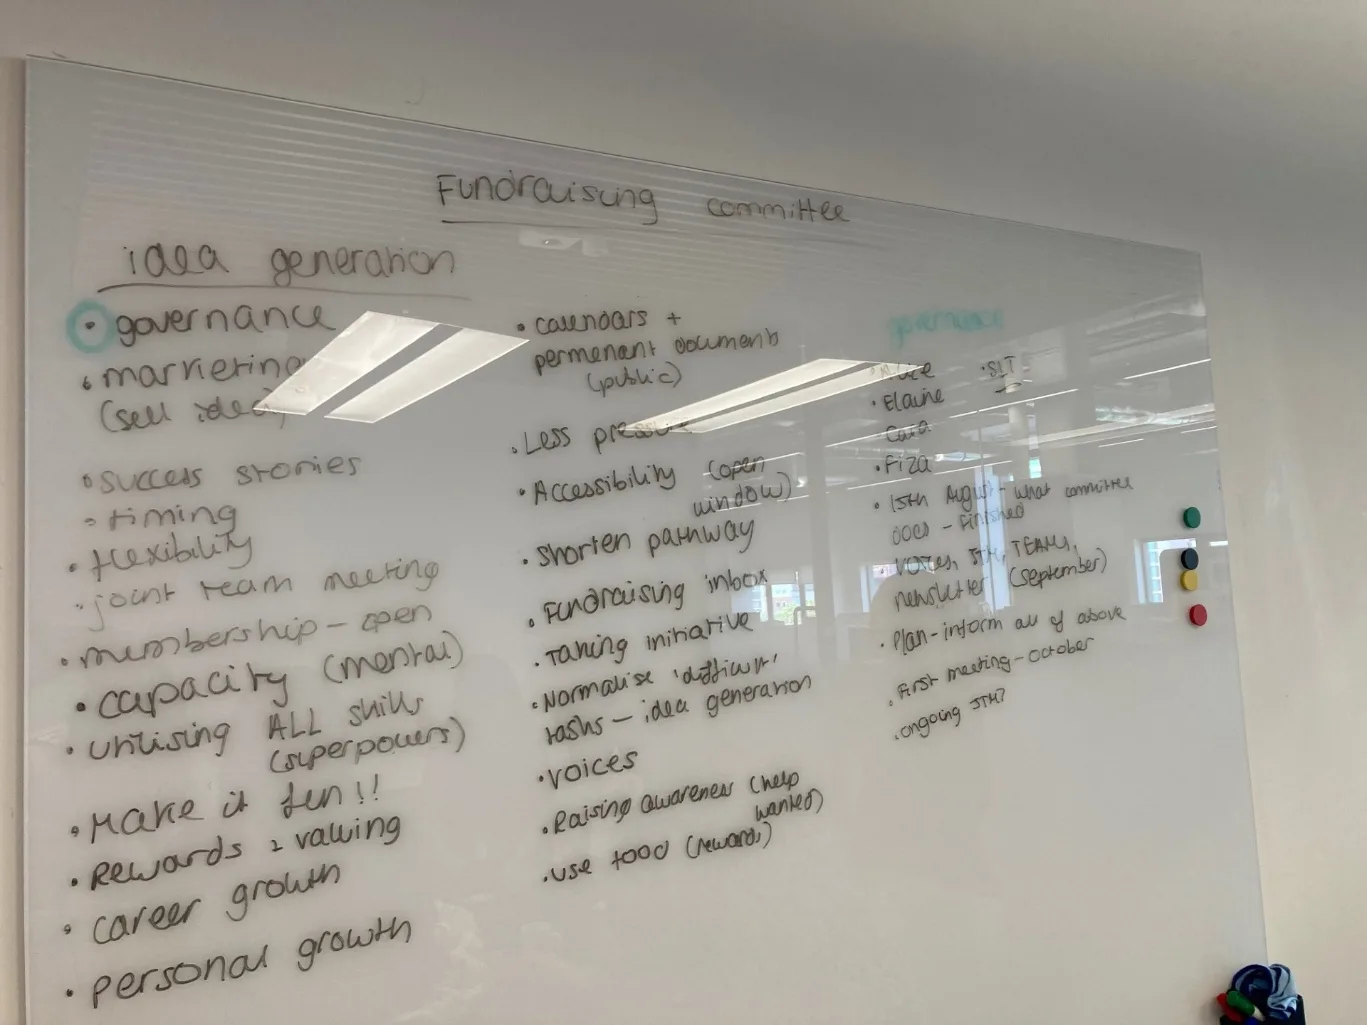 Fundraising committee
idea generation
• governance
• marketing
(sell idea)
• success stories
• timing
• flexibility
• joint team meeting
• membership - open
• capacity (mental)
• utilising ALL skills
(superpowers)
• Make it fun!!
• Rewards & valuing
• career growth
• personal growth
• calendars +
permenant documents
(public)
• Less pressure
• Accessibility (open
window)
• shorten pathway
• Fundraising inbox
• Taking initiative
• Normalise 'difficult'
tasks - idea generation
• voices
• Raising awareness (help
wanted)
• use food (rewards)
governance
• SLT
• Elaine
• Cara
• Fiza
• 15th August - what committee
does - finished
• voices, STM, TEAMS,
newsletter (september)
• Plan - inform all of above
• First meeting - October
• ongoing STM?